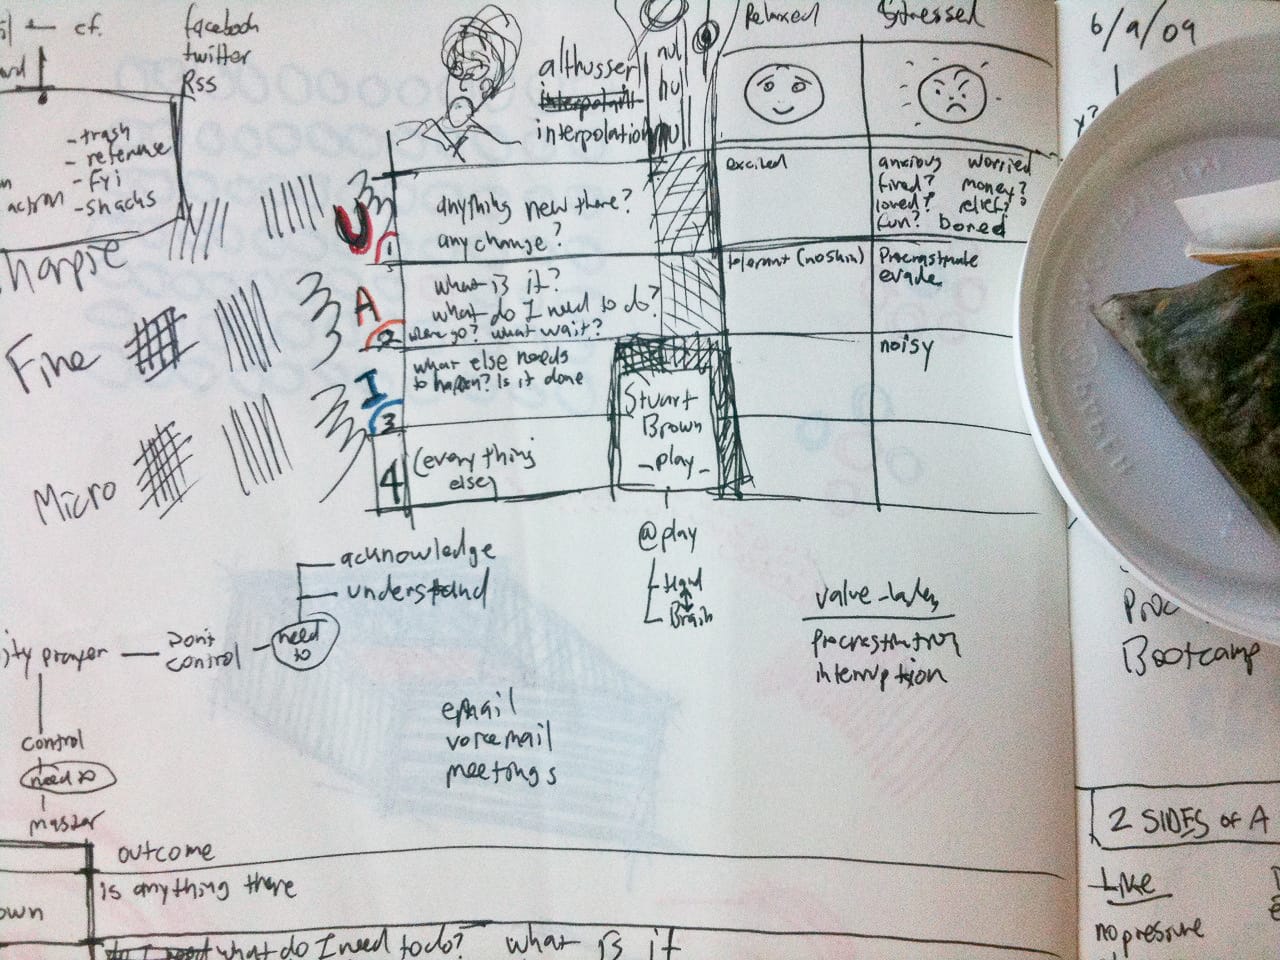 cf.
facebook
twitter
RSS
- trash
- reference
- fyi
- snacks
action
althusser
interpolation
Relaxed
Stressed
6/9/09
U
1
anything new there?
any change?
excited
anxious worried
fired? money?
loved? relief?
fun? bored
A
2
what is it?
what do I need to do?
where go? what wait?
tolerant (no shin)
Procrastinate
evade
I
3
what else needs
to happen? Is it done
noisy
Stuart
Brown
- play -
4
(everything
else)
Fine
Micro
@play
Hand
Brain
acknowledge
understand
need
to
Don't
control
ity prayer
control
need to
master
value-laden
procrastination
interruption
email
voicemail
meetings
Bootcamp
2 SIDES OF A
Like
no pressure
outcome
is anything there
own
what do I need to do? what is it